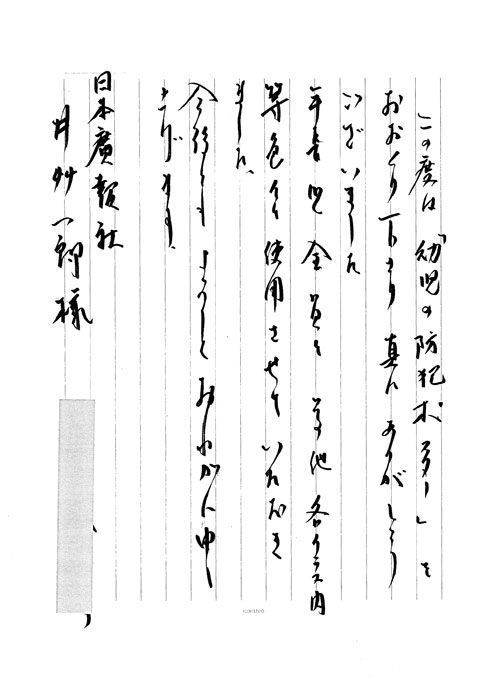 この度は「幼児の防犯ポスター」を
おおくり下さり 真にありがとう
ございました
年長児 全員と 其他 各クラス内
等色々使用させていただき
ました。
今後とも よろしく おねがい申し
上げます。
日本廣報社
井艸一郎様